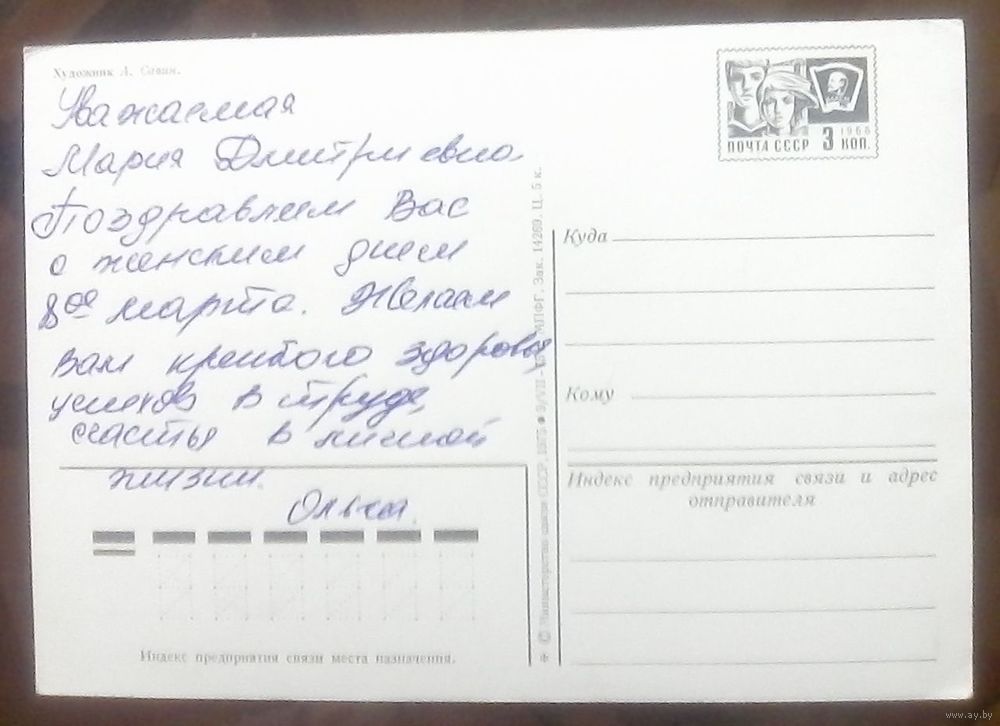 Художник Л. Савин.
Уважаемая
Мария Дмитриевна
Поздравляем Вас
с женским днем
8ое марта. Желаем
Вам крепкого здоровья,
успехов в труде,
счастья в личной
жизни.
Ольга.
Индекс предприятия связи места назначения.
© Министерство связи СССР, МПФГ. Зак. 14269. Ц. 5 к.
ПОЧТА СССР 3 КОП.
1966
Куда
Кому
Индекс предприятия связи и адрес
отправителя
www.ay.by